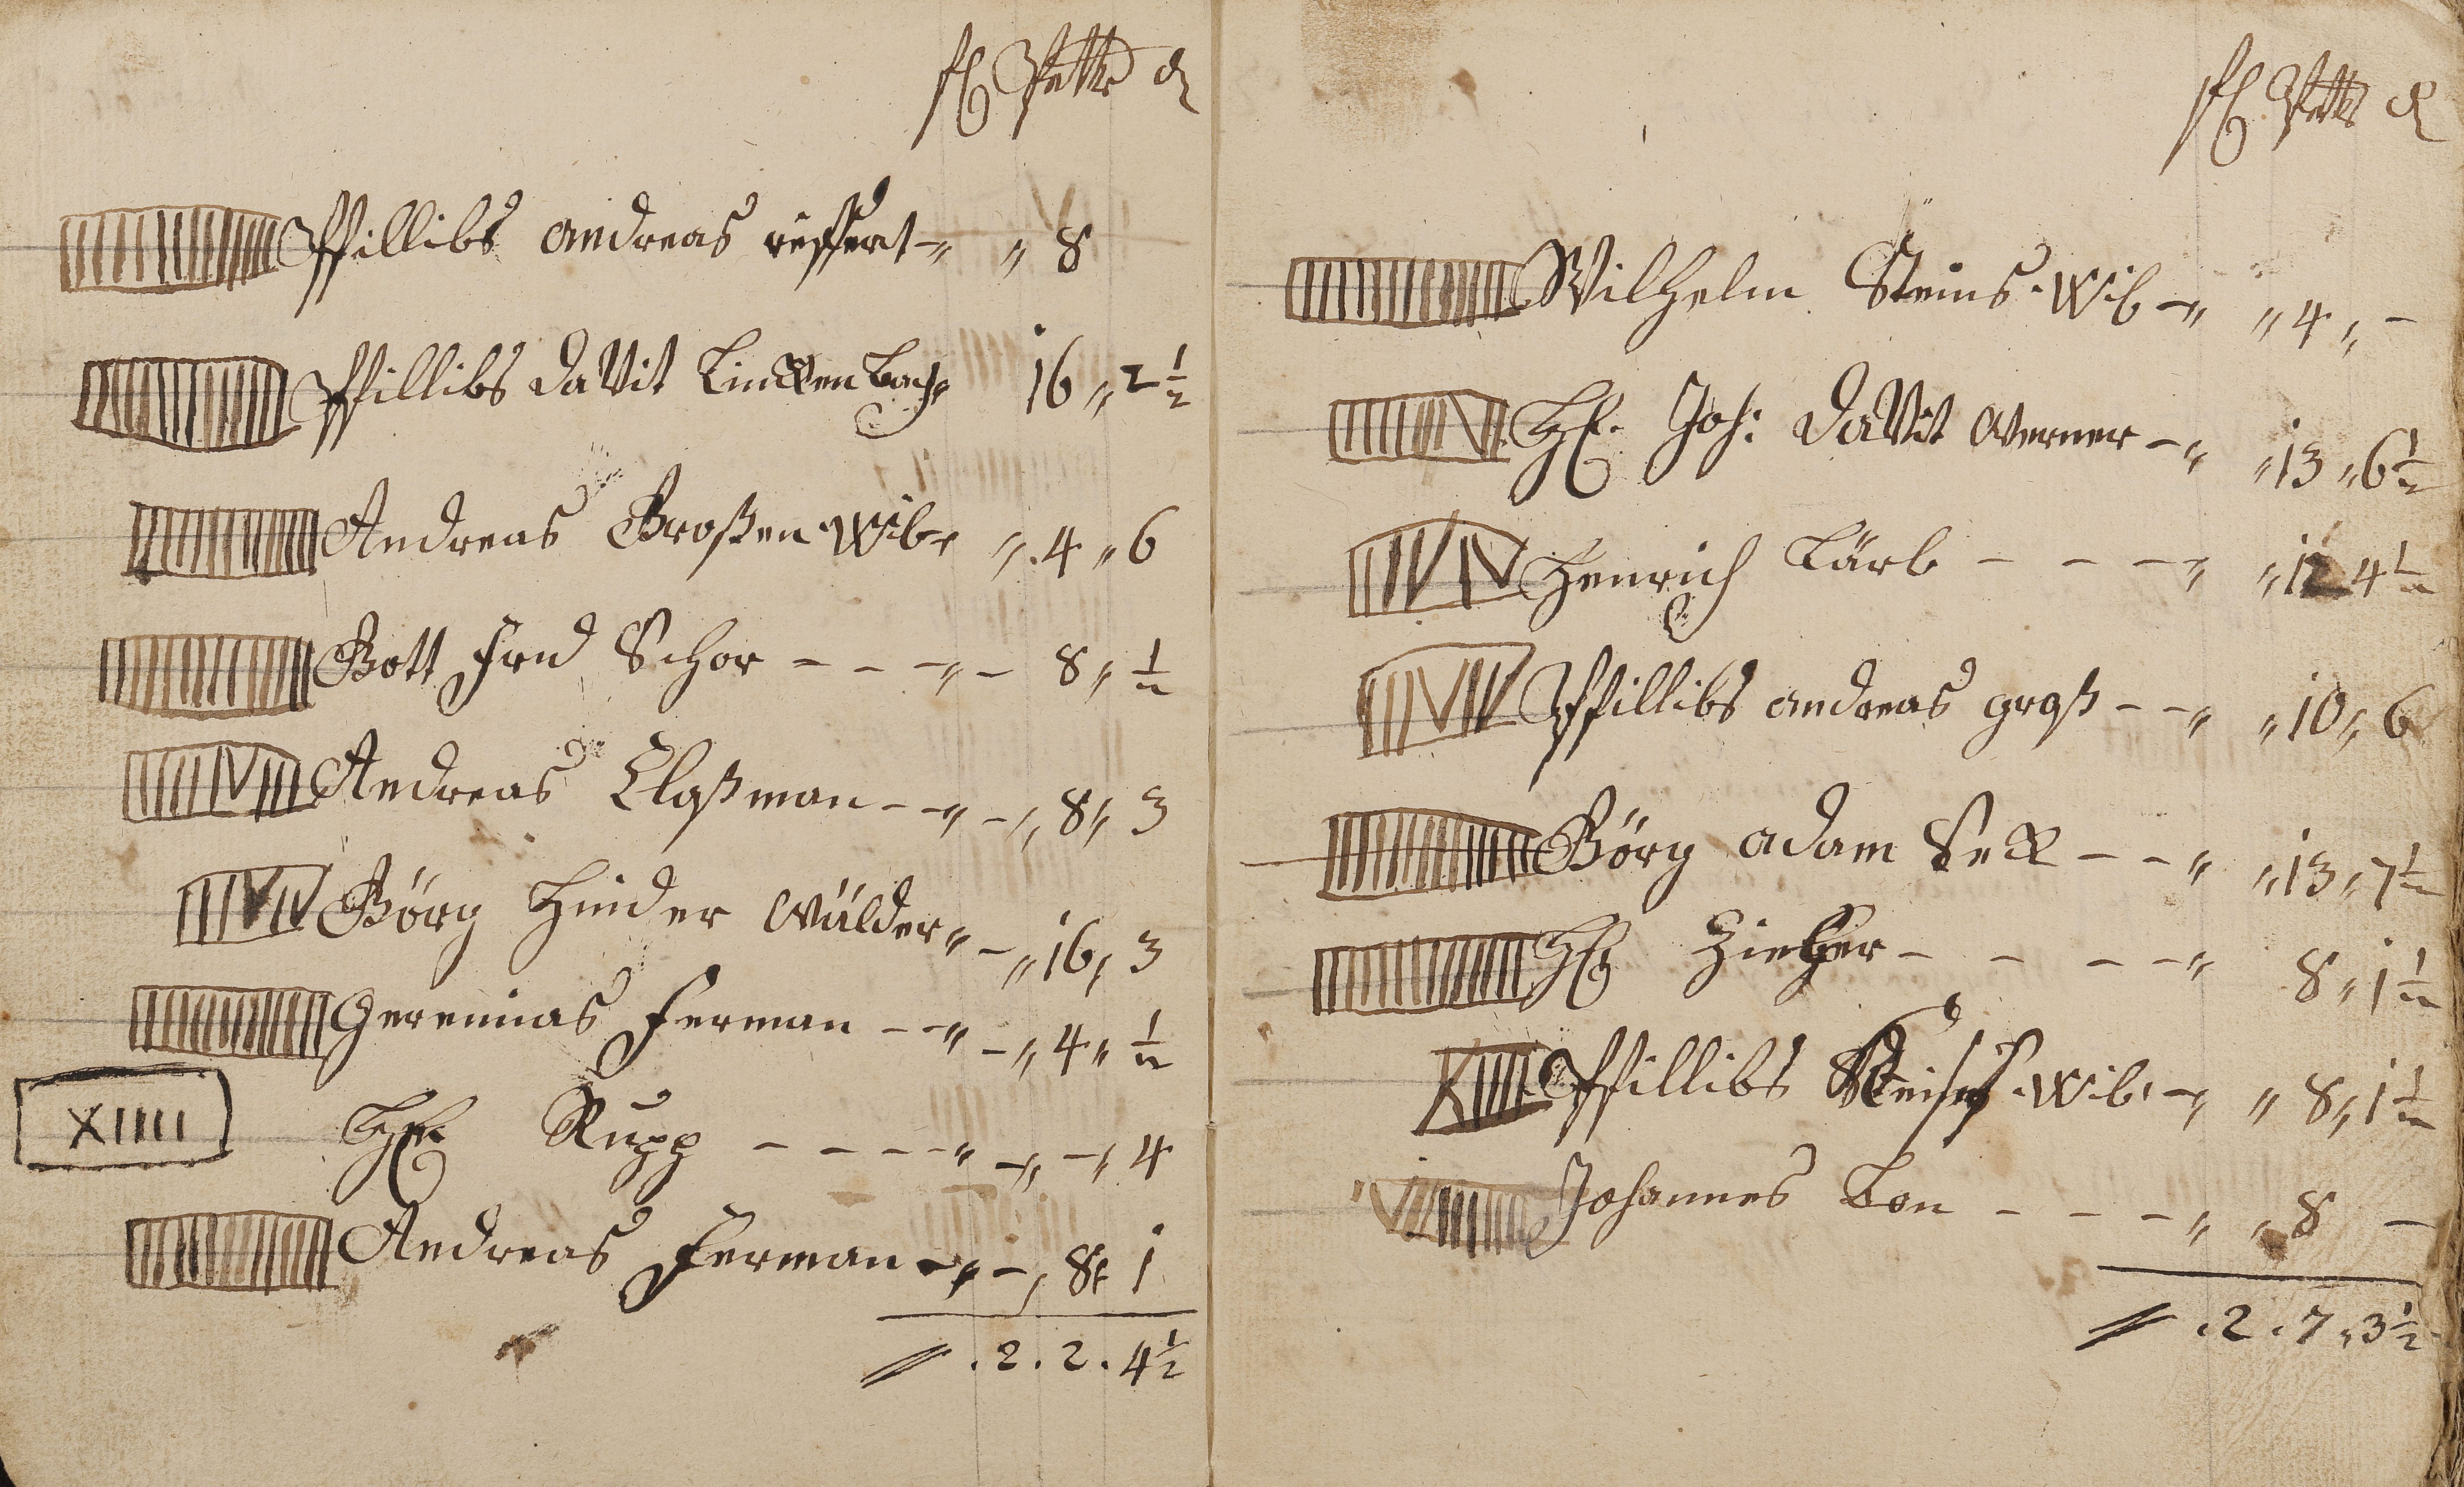 fl Batz d
Pfillibs andreas rissert - „ „ 8
Pfillibs daVit Linckenbach „ 16 „ 2 1/2
Andreas Großen Wib „ „ 4 „ 6
Gott frid Schor - - - „ - 8 „ 1/2
Andreas Claßman - - „ - „ 8 „ 3
Görg Hinder Wälder „ - „ 16 „ 3
Geremias Ferman - - „ - „ 4 „ 1/2
XIIII Hr Rupp - - - - „ - „ - „ 4
Andreas Ferman - „ - „ 8 „ 1
. 2 . 2 . 4 1/2
fl Batz d
Wilhelm Steins Wib - „ „ 4 „ -
Hr. Joh: daVit Werner - „ „ 13 „ 6 1/2
Henrich Lärb - - - „ „ 12 4 1/2
Pfillibs andreas groß - - „ „ 10 „ 6
Görg adam Seck - - „ „ 13 „ 7 1/2
Hr Zieher - - - - „ 8 „ 1 1/2
Pfillibs Wib - „ „ 8 „ 1 1/2
Johannes Bon - - - „ „ 8 -
. 2 . 7 „ 3 1/2